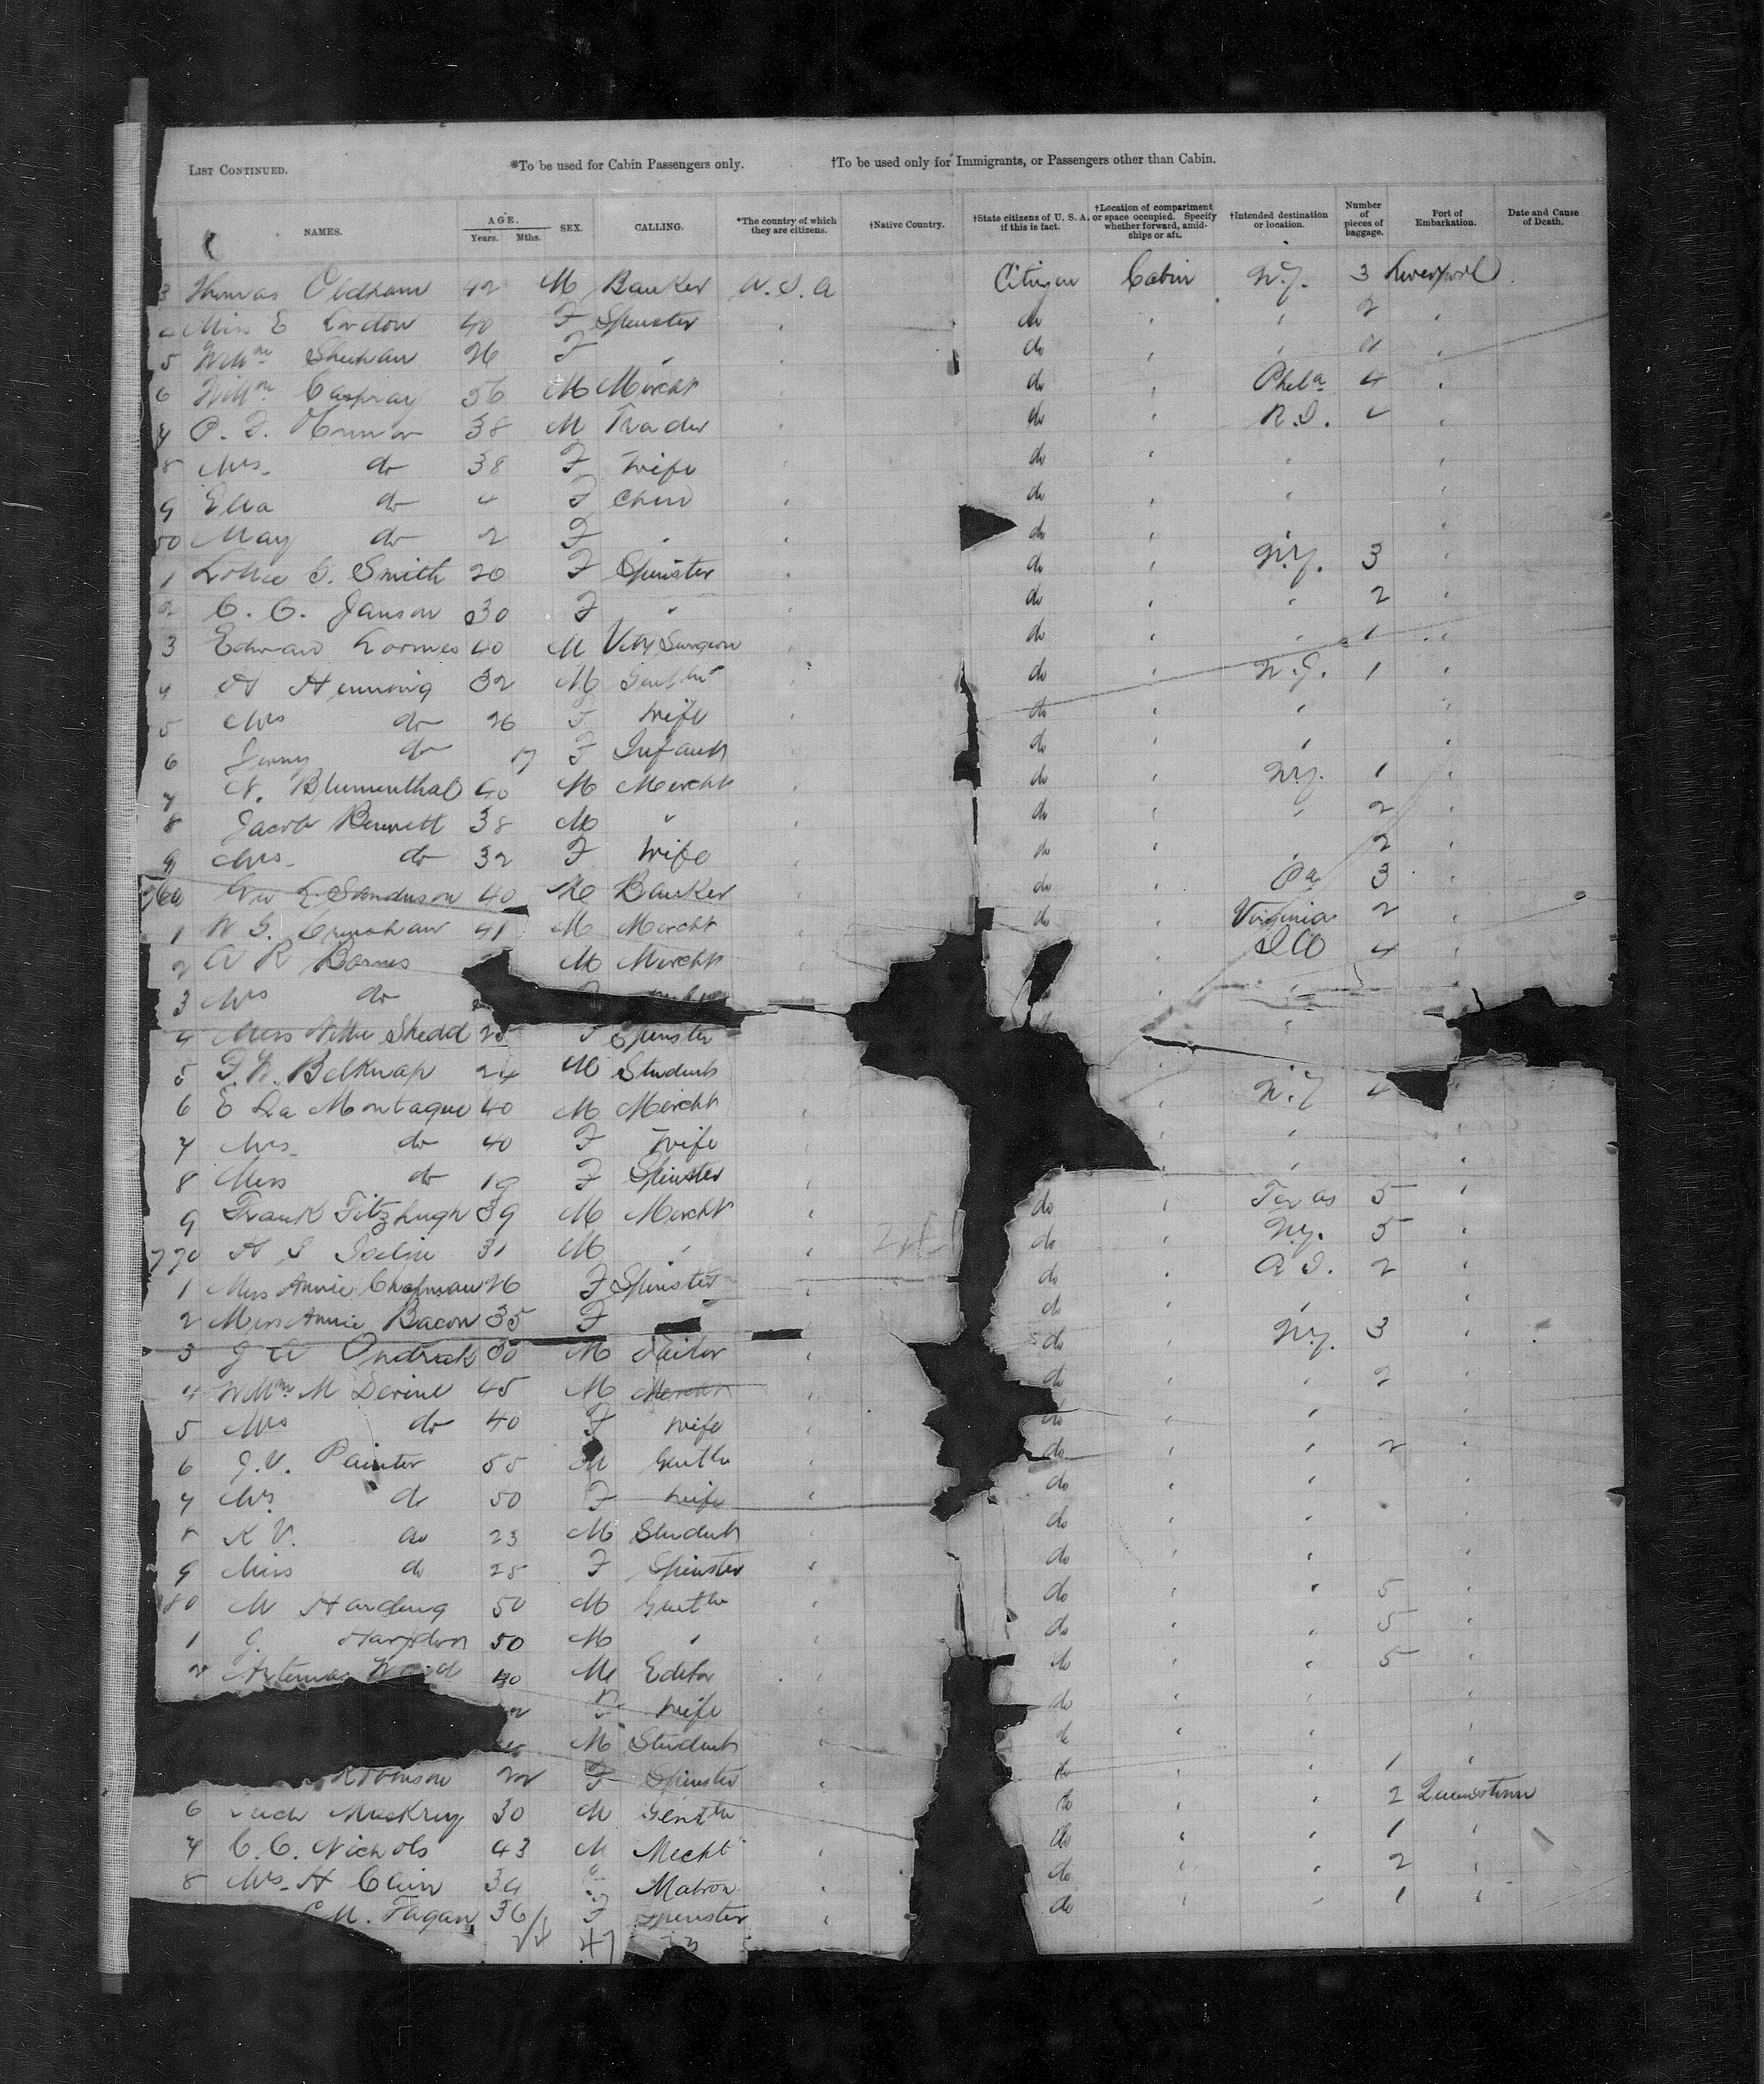 LIST CONTINUED. *To be used for Cabin Passengers only. †To be used only for Immigrants, or Passengers other than Cabin.
NAMES. AGE. Years. Mths. SEX. CALLING. *The country of which they are citizens. †Native Country. †State citizens of U. S. A. if this is fact. †Location of compartment or space occupied. Specify whether forward, amidships or aft. †Intended destination or location. Number of pieces of baggage. Port of Embarkation. Date and Cause of Death.
3 Thomas Oldham 42 M Banker U.S.A Citizen Cabin N.Y. 3 Liverpool
Miss E 40 F Spinster " do " " 2 "
5 Willm 26 F " " do " " "
6 Willm 56 M Mercht do " Phela 4 "
P. 38 M Trader " do " R.I. "
8 Mrs. do 38 F Wife " do " " "
9 Ella do 4 F Child " do " " "
50 May do 2 F " " do " "
1 Lottie G. Smith 20 F Spinster " do " N.Y. 3 "
2 C. C. Janson 30 F " " do " " 2 "
3 Edward 40 M Vety Surgeon " do " " 1 "
4 H Henning 32 M " do " N.J. 1 "
5 Mrs do 26 F Wife " do " " "
6 Jenny do 17 F Infant do " " "
7 N. Blumenthal 40 M Mercht " do " N.Y. 1 "
8 Jacob Bennett 38 M " " do " " 2 "
9 Mrs. do 32 F Wife " do " " 2 "
760 Sanderson 40 M Banker " do " Pa 3 "
1 W G. Crenshaw 41 M Mercht " do " Virginia 2 "
2 A R Barnes M Mercht " 4 "
3 Mrs do F " "
4 Miss Nettie Shedd 25 F Spinster "
5 Belknap 24 M Student N.Y 4 "
6 E La Montague 40 M Mercht " "
7 Mrs. do 40 F Wife " "
8 Miss do 19 F Spinster " " "
9 Frank Fitzhugh 39 M Mercht " do " Texas 5 "
770 H S Iselin 31 M " " do " N.Y. 5 "
1 Miss Annie Chapman 26 F Spinster " do " 2 "
2 Miss Annie Bacon 35 F do " " "
3 J A 30 M " do " N.Y. 3 "
4 Willm M Devine 45 M Mercht " do " " 2 "
5 Mrs do 40 F Wife " do " " "
6 J.V. Painter 55 M Gentln " do " " 2 "
7 Mrs. do 50 F Wife " do " " "
8 K V. do 23 M Student do " " "
9 Miss do 25 F Spinster " do " " "
780 M Harding 50 M Gentln " do " " 5 "
1 J. 50 M " " do " " 5 "
2 40 M Editor " do " " 5 "
F Wife do " " "
M Student " do " " "
Robinson 22 F Spinster " do " " 1 "
6 30 M Gentln do " " 2 Queenstown
7 C. C. Nichols 43 M Mecht " do " " 1 "
8 Mrs. H Cain 34 Matron " do " " 2 "
M. Fagan 36 F Spinster " do " " 1 "
47